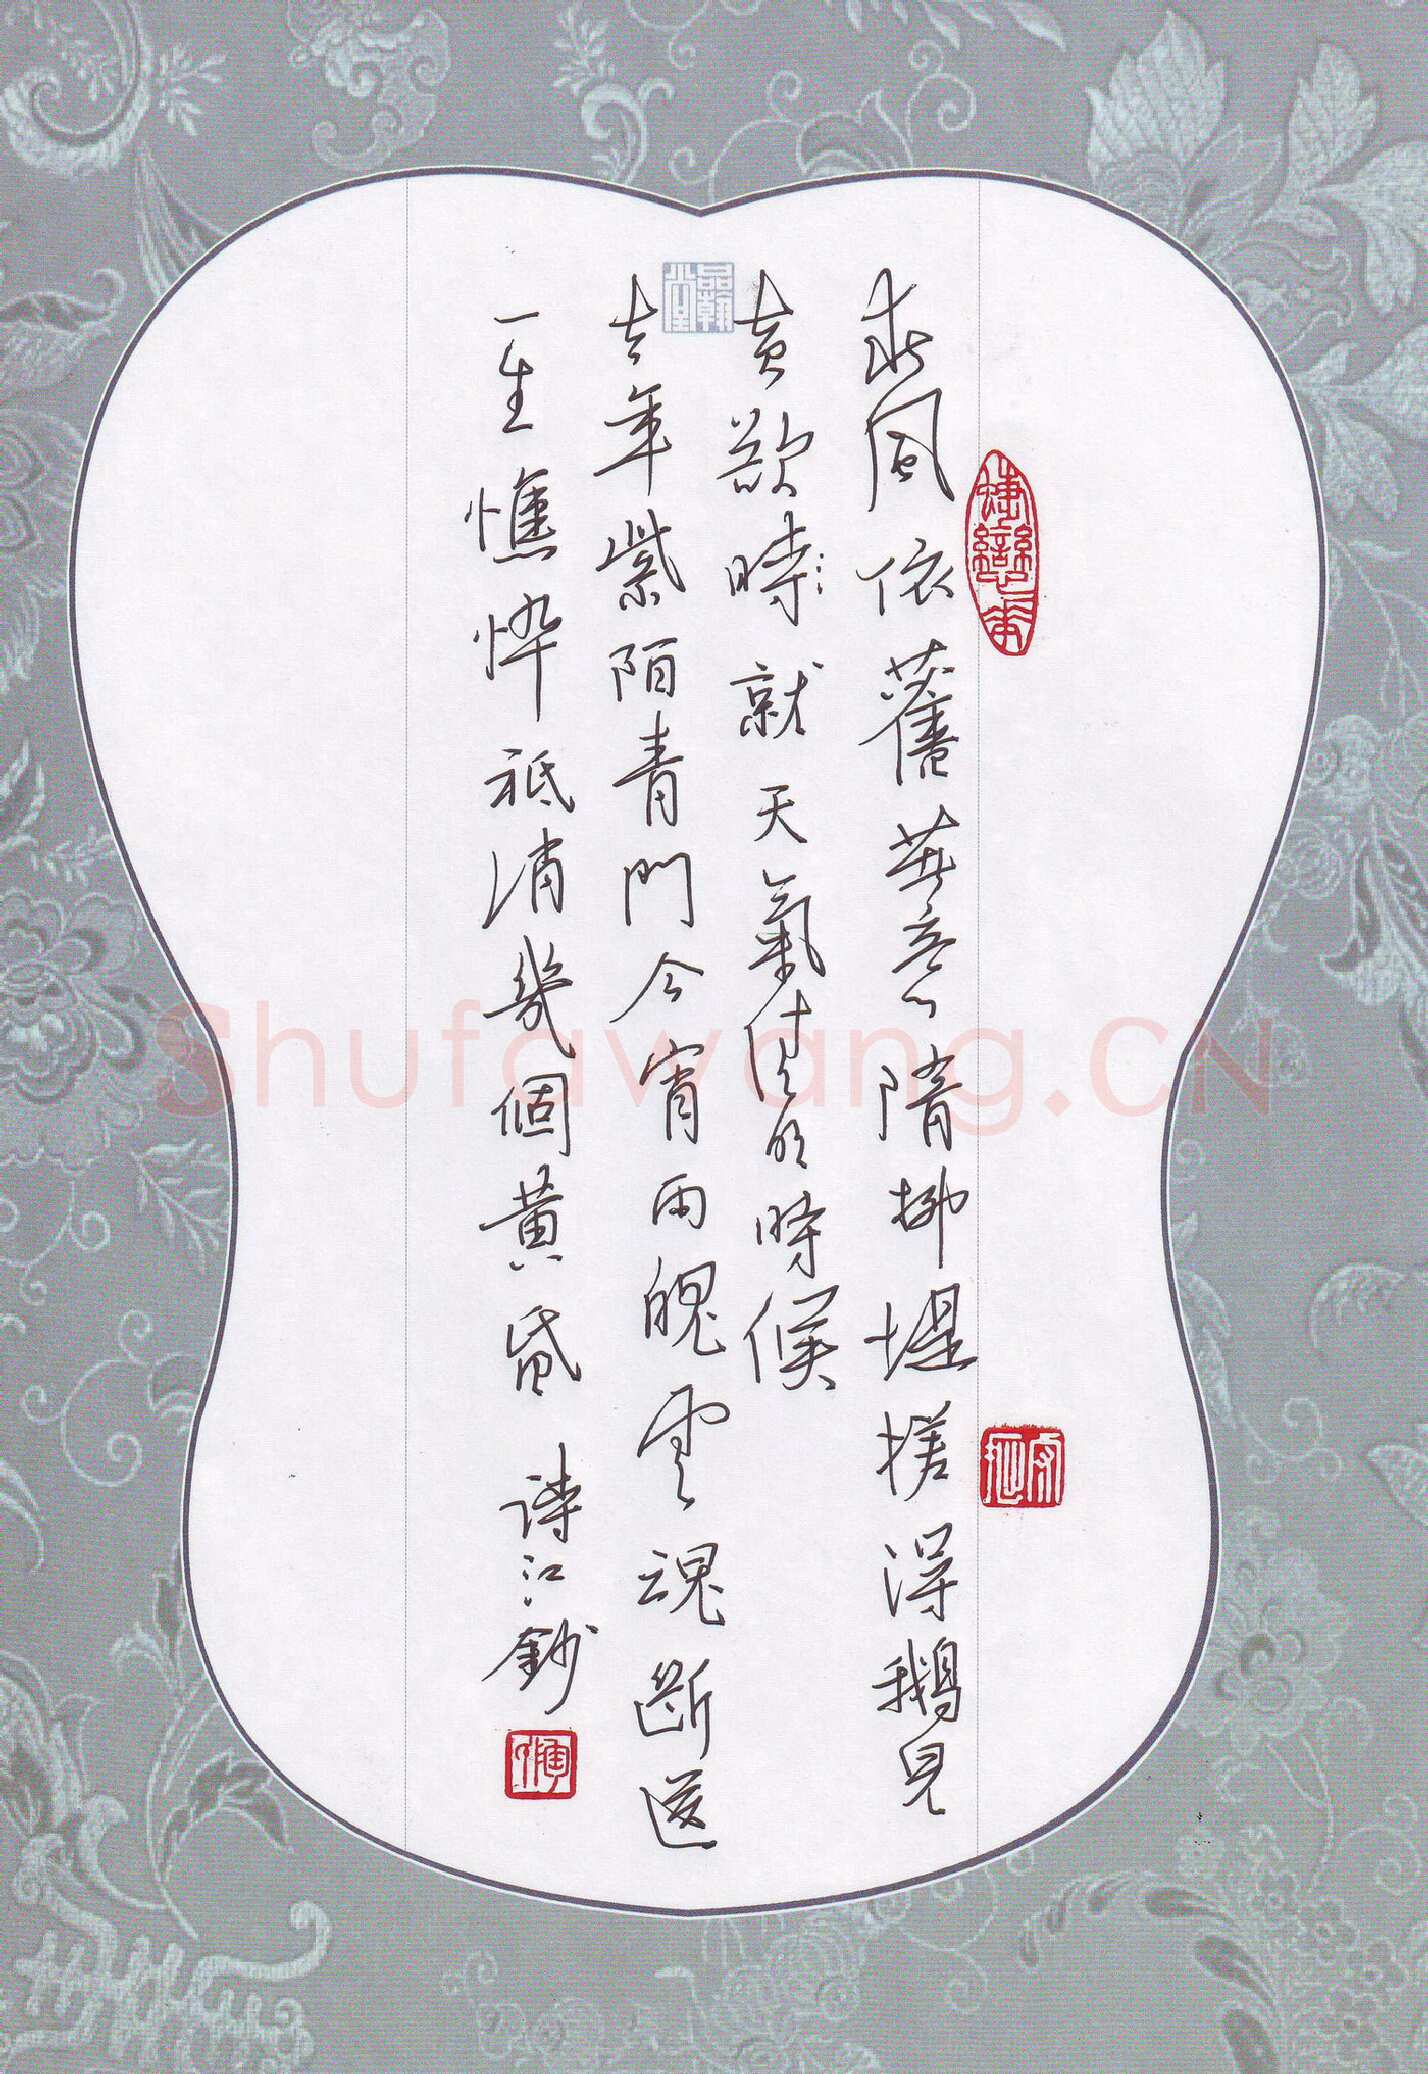 春風依舊著意隋柳堤搓得鵝兒
黃欲時就天氣清明時候
去年紫陌青門今宵雨魄雲魂斷送
一生憔悴祗消幾個黃昏 詩江鈔
品翰堂
Shufawang.CN